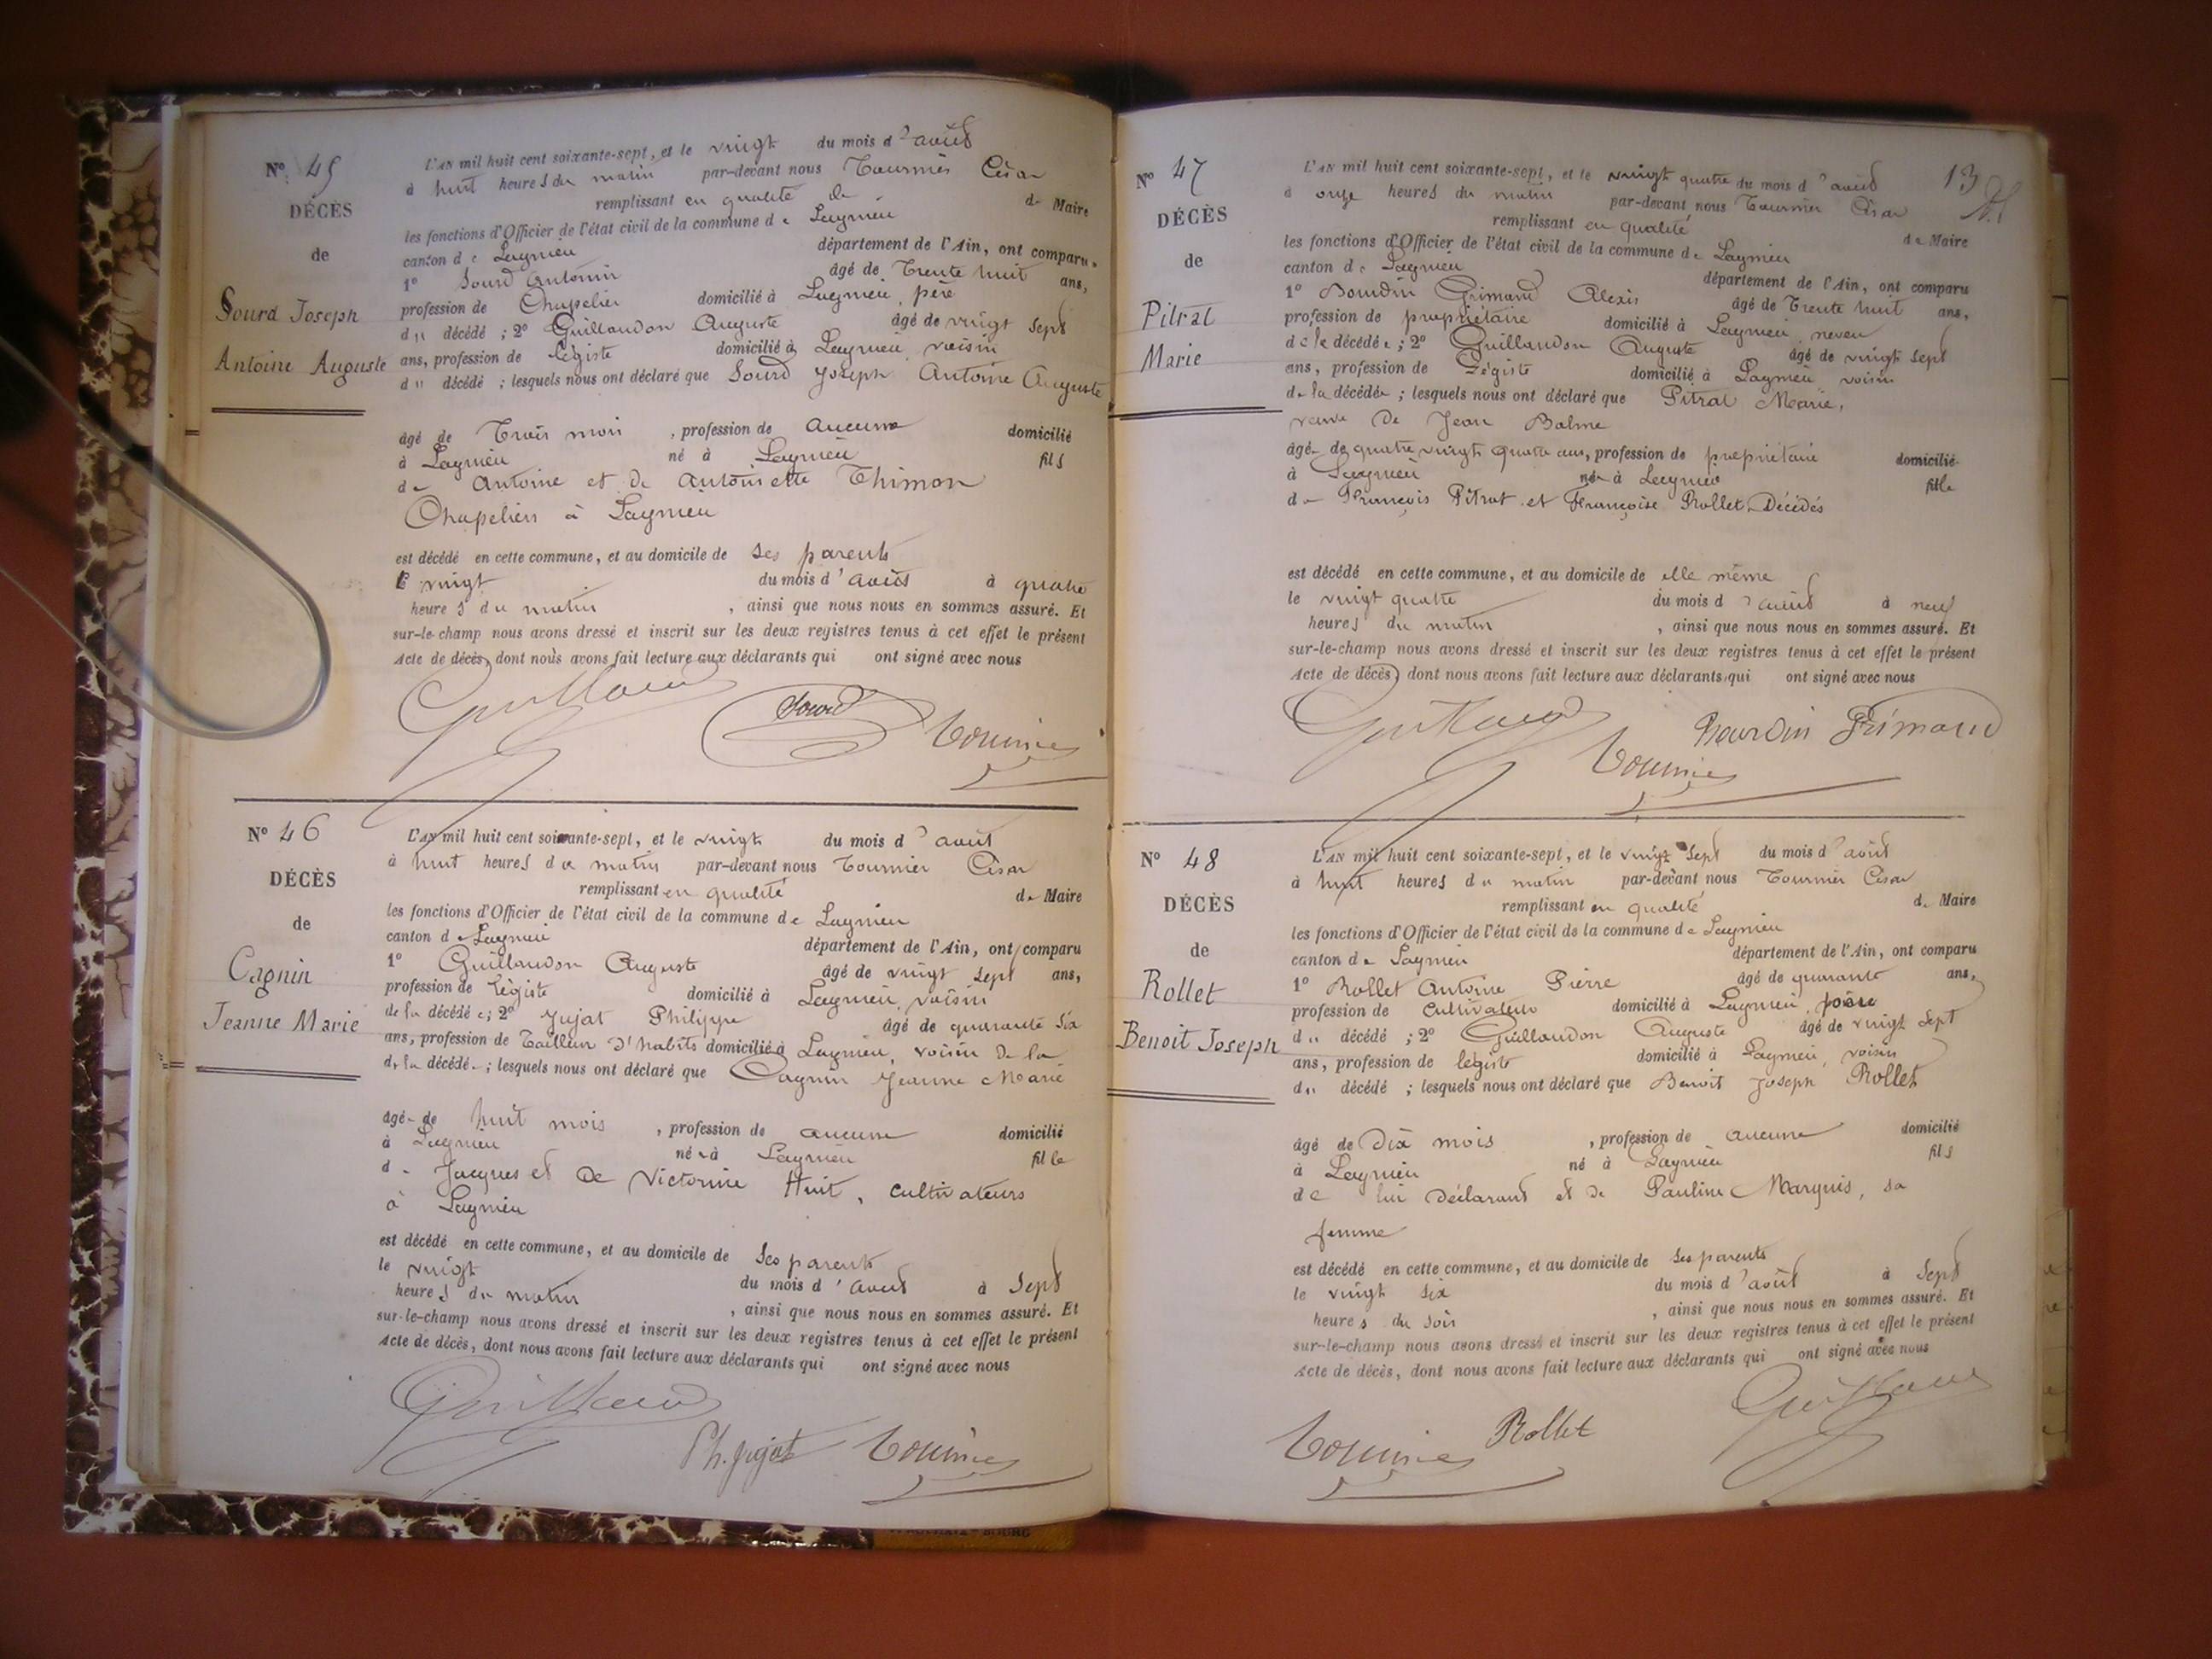 N° 45
DÉCÈS
de
Sourd Joseph
Antoine Auguste
L'AN mil huit cent soixante-sept, et le vingt du mois d'août
à huit heures du matin par-devant nous Tournier César
remplissant en qualité de de Maire
les fonctions d'Officier de l'état civil de la commune de Lagnieu
canton de Lagnieu département de l'Ain, ont comparu
1° Sourd Antonin âgé de Trente huit ans,
profession de Chapelier domicilié à Lagnieu, père
du décédé ; 2° Guillaudon Auguste âgé de vingt sept
ans, profession de légiste domicilié à Lagnieu voisin
du décédé ; lesquels nous ont déclaré que Sourd Joseph Antoine Auguste
âgé de Trois mois , profession de aucune domicilié
à Lagnieu né à Lagnieu fils
de Antoine et de Antoinette Thimon
Chapeliers à Lagnieu
est décédé en cette commune, et au domicile de ses parents
le vingt du mois d'août à quatre
heures du matin , ainsi que nous nous en sommes assuré. Et
sur-le-champ nous avons dressé et inscrit sur les deux registres tenus à cet effet le présent
Acte de décès, dont nous avons fait lecture aux déclarants qui ont signé avec nous
Sourd
Tournier
N° 46
DÉCÈS
de
Cagnin
Jeanne Marie
L'AN mil huit cent soixante-sept, et le vingt du mois d'août
à huit heures du matin par-devant nous Tournier César
remplissant en qualité de Maire
les fonctions d'Officier de l'état civil de la commune de Lagnieu
canton de Lagnieu département de l'Ain, ont comparu
1° Guillaudon Auguste âgé de vingt sept ans,
profession de légiste domicilié à Lagnieu, voisin
de la décédée ; 2° Jujat Philippe âgé de quarante six
ans, profession de Tailleur d'habits domicilié à Lagnieu, voisin de la
de la décédée ; lesquels nous ont déclaré que Cagnin Jeanne Marie
âgée de huit mois , profession de aucune domicilié
à Lagnieu née à Lagnieu fille
de Jacques et de Victorine Huit, cultivateurs
à Lagnieu
est décédé en cette commune, et au domicile de ses parents
le vingt du mois d'août à sept
heures du matin , ainsi que nous nous en sommes assuré. Et
sur-le-champ nous avons dressé et inscrit sur les deux registres tenus à cet effet le présent
Acte de décès, dont nous avons fait lecture aux déclarants qui ont signé avec nous
Ph. Jujat Tournier
13
N° 47
DÉCÈS
de
Pitrat
Marie
L'AN mil huit cent soixante-sept, et le vingt quatre du mois d'août
à onze heures du matin par-devant nous Tournier César
remplissant en qualité de Maire
les fonctions d'Officier de l'état civil de la commune de Lagnieu
canton de Lagnieu département de l'Ain, ont comparu
1° Bourdin Grimaud Alexis âgé de Trente huit ans,
profession de propriétaire domicilié à Lagnieu, neveu
de la décédée ; 2° Guillaudon Auguste âgé de vingt sept
ans, profession de Légiste domicilié à Lagnieu voisin
de la décédée ; lesquels nous ont déclaré que Pitrat Marie,
veuve de Jean Balme
âgée de quatre vingt quatre ans, profession de propriétaire domicilié
à Lagnieu née à Lagnieu fille
de François Pitrat et Françoise Rollet Décédés
est décédé en cette commune, et au domicile de elle même
le vingt quatre du mois d'août à neuf
heures du matin , ainsi que nous nous en sommes assuré. Et
sur-le-champ nous avons dressé et inscrit sur les deux registres tenus à cet effet le présent
Acte de décès, dont nous avons fait lecture aux déclarants qui ont signé avec nous
Bourdin Grimaud
Tournier
N° 48
DÉCÈS
de
Rollet
Benoit Joseph
L'AN mil huit cent soixante-sept, et le vingt sept du mois d'août
à huit heures du matin par-devant nous Tournier César
remplissant en qualité de Maire
les fonctions d'Officier de l'état civil de la commune de Lagnieu
canton de Lagnieu département de l'Ain, ont comparu
1° Rollet Antoine Pierre âgé de quarante ans,
profession de Cultivateur domicilié à Lagnieu, père
du décédé ; 2° Guillaudon Auguste âgé de vingt sept
ans, profession de légiste domicilié à Lagnieu, voisin
du décédé ; lesquels nous ont déclaré que Benoit Joseph Rollet
âgé de Dix mois , profession de aucune domicilié
à Lagnieu né à Lagnieu fils
de lui déclarant et de Pauline Marquis, sa
femme
est décédé en cette commune, et au domicile de ses parents
le vingt six du mois d'août à sept
heures du soir , ainsi que nous nous en sommes assuré. Et
sur-le-champ nous avons dressé et inscrit sur les deux registres tenus à cet effet le présent
Acte de décès, dont nous avons fait lecture aux déclarants qui ont signé avec nous
Tournier Rollet